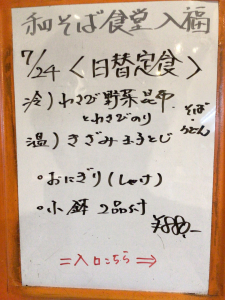 和そば食堂 入福
7/24 〈日替定食〉
冷)わさび野菜昆布
とわさびのり
そば・うどん
温)きざみ玉子とじ
。おにぎり(しゃけ)
。小鉢 2品付
=入口こちら⇒